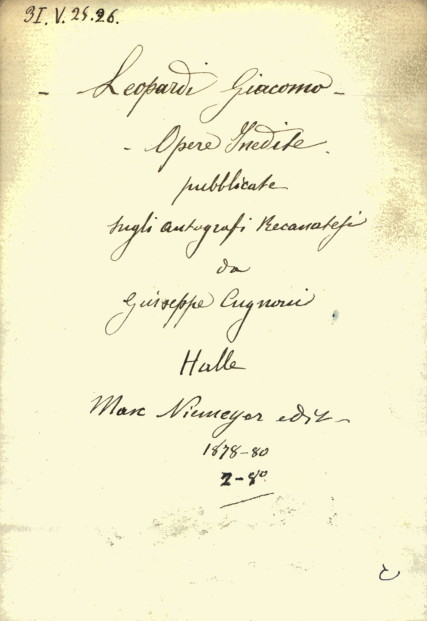 31. V. 25.26.
- Leopardi Giacomo -
- Opere Inedite.
pubblicate
sugli autografi Recanatesi
da
Giuseppe Cugnoni
Halle
Max Niemeyer edit -
1878-80
2-8°